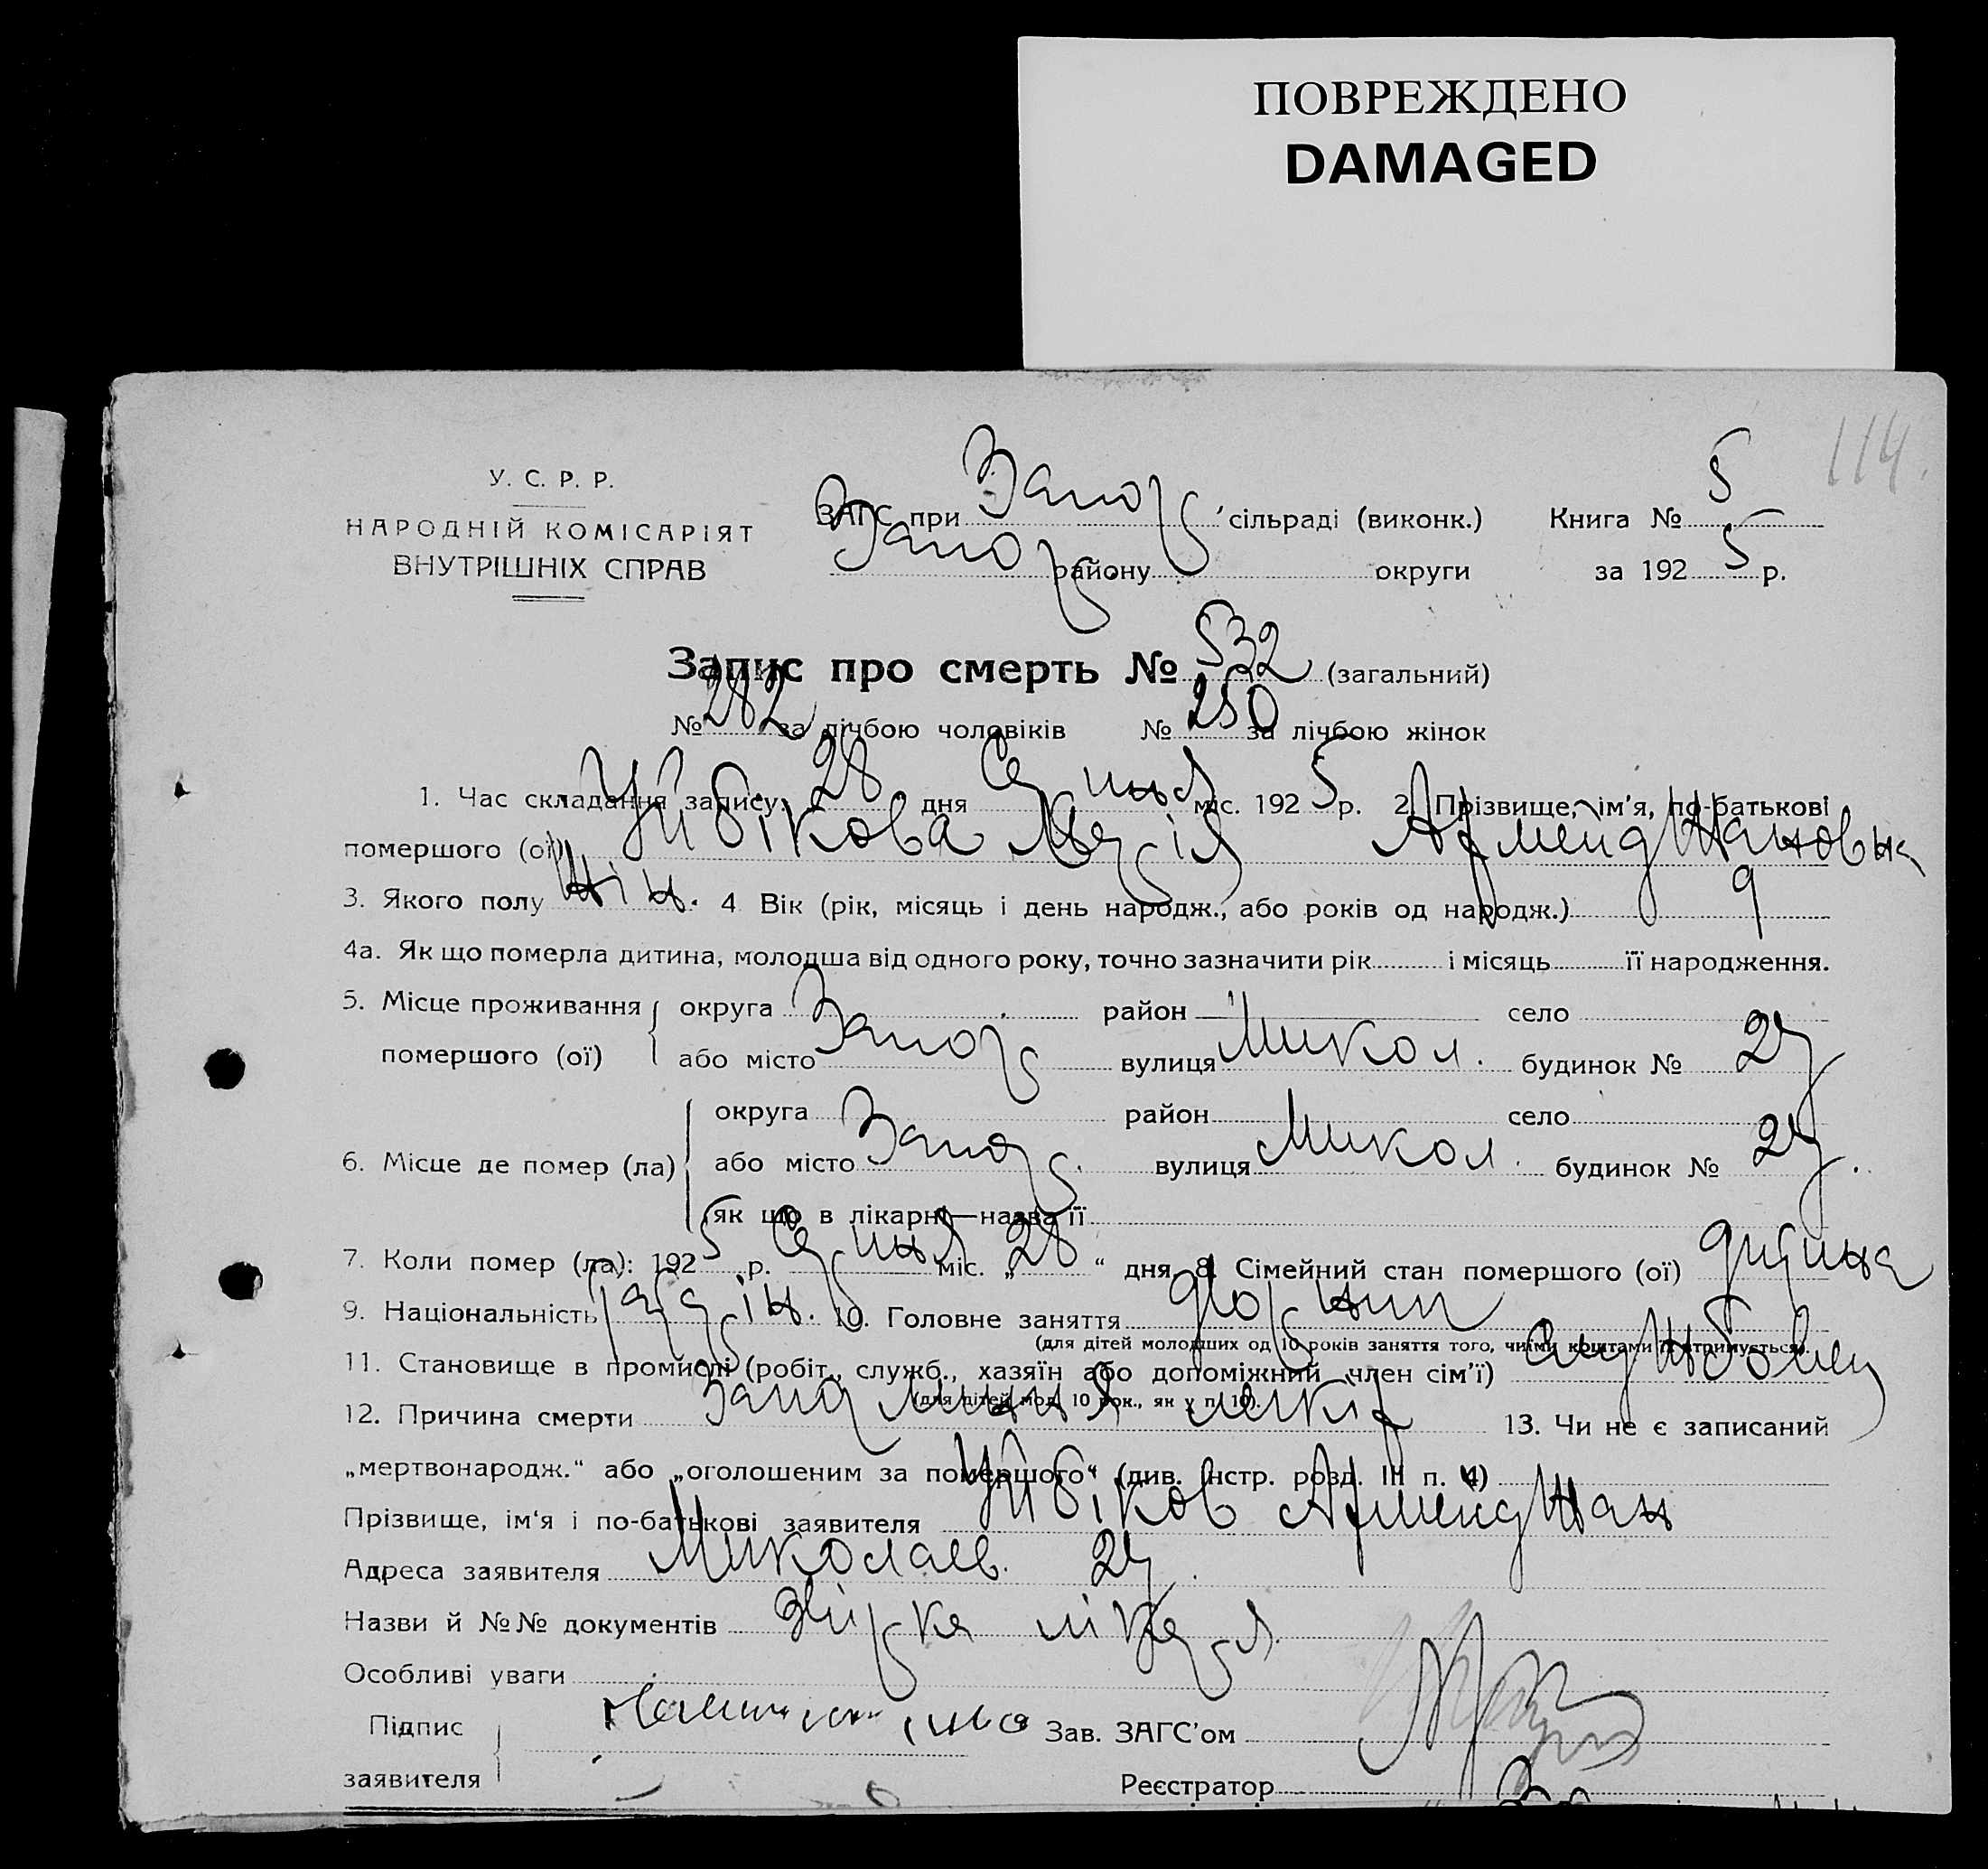 ПОВРЕЖДЕНО
DAMAGED
114.
У. С. Р. Р.
НАРОДНІЙ КОМІСАРІЯТ
ВНУТРІШНІХ СПРАВ
ЗАГС при Запор. сільраді (виконк.) Книга № 5
Запор. району округи за 1925 р.
Запис про смерть № 532 (загальний)
№ 282 за лічбою чоловіків № 250 за лічбою жінок
1. Час складання запису: 28 дня Серпня міс. 1925 р. 2. Прізвище, ім’я, по-батькові
помершого (ої) Уйбікова Ахмейджановна
3. Якого полу жін. 4 Вік (рік, місяць і день народж., або років од народж.) 9
4а. Як що померла дитина, молодша від одного року, точно зазначити рік і місяць її народження.
5. Місце проживання помершого (ої) округа район село
або місто Запор. вулиця Микол. будинок № 27
6. Місце де помер (ла) округа район село
або місто Запор. вулиця Микол. будинок № 27.
як що в лікарні—назва її
7. Коли помер (ла): 1925 р. Серпня міс. „28“ дня. 8. Сімейний стан помершого (ої) дитина
9. Національність 10. Головне заняття
(для дітей молодших од 10 років заняття того, чиїми коштами їх утримується).
11. Становище в промислі (робіт., служб., хазяїн або допоміжний член сім’ї) службовец
(для дітей мол. 10 рок., як у п. 10).
12. Причина смерти 13. Чи не є записаний
„мертвонародж.“ або „оголошеним за помершого“ (див. Інстр. розд. III п. 4)
Прізвище, ім‘я і по-батькові заявителя Уйбіков Ахмейджан
Адреса заявителя Миколаев. 27.
Назви й №№ документів лікаря.
Особливі уваги
Підпис заявителя Зав. ЗАГС’ом
Реєстратор